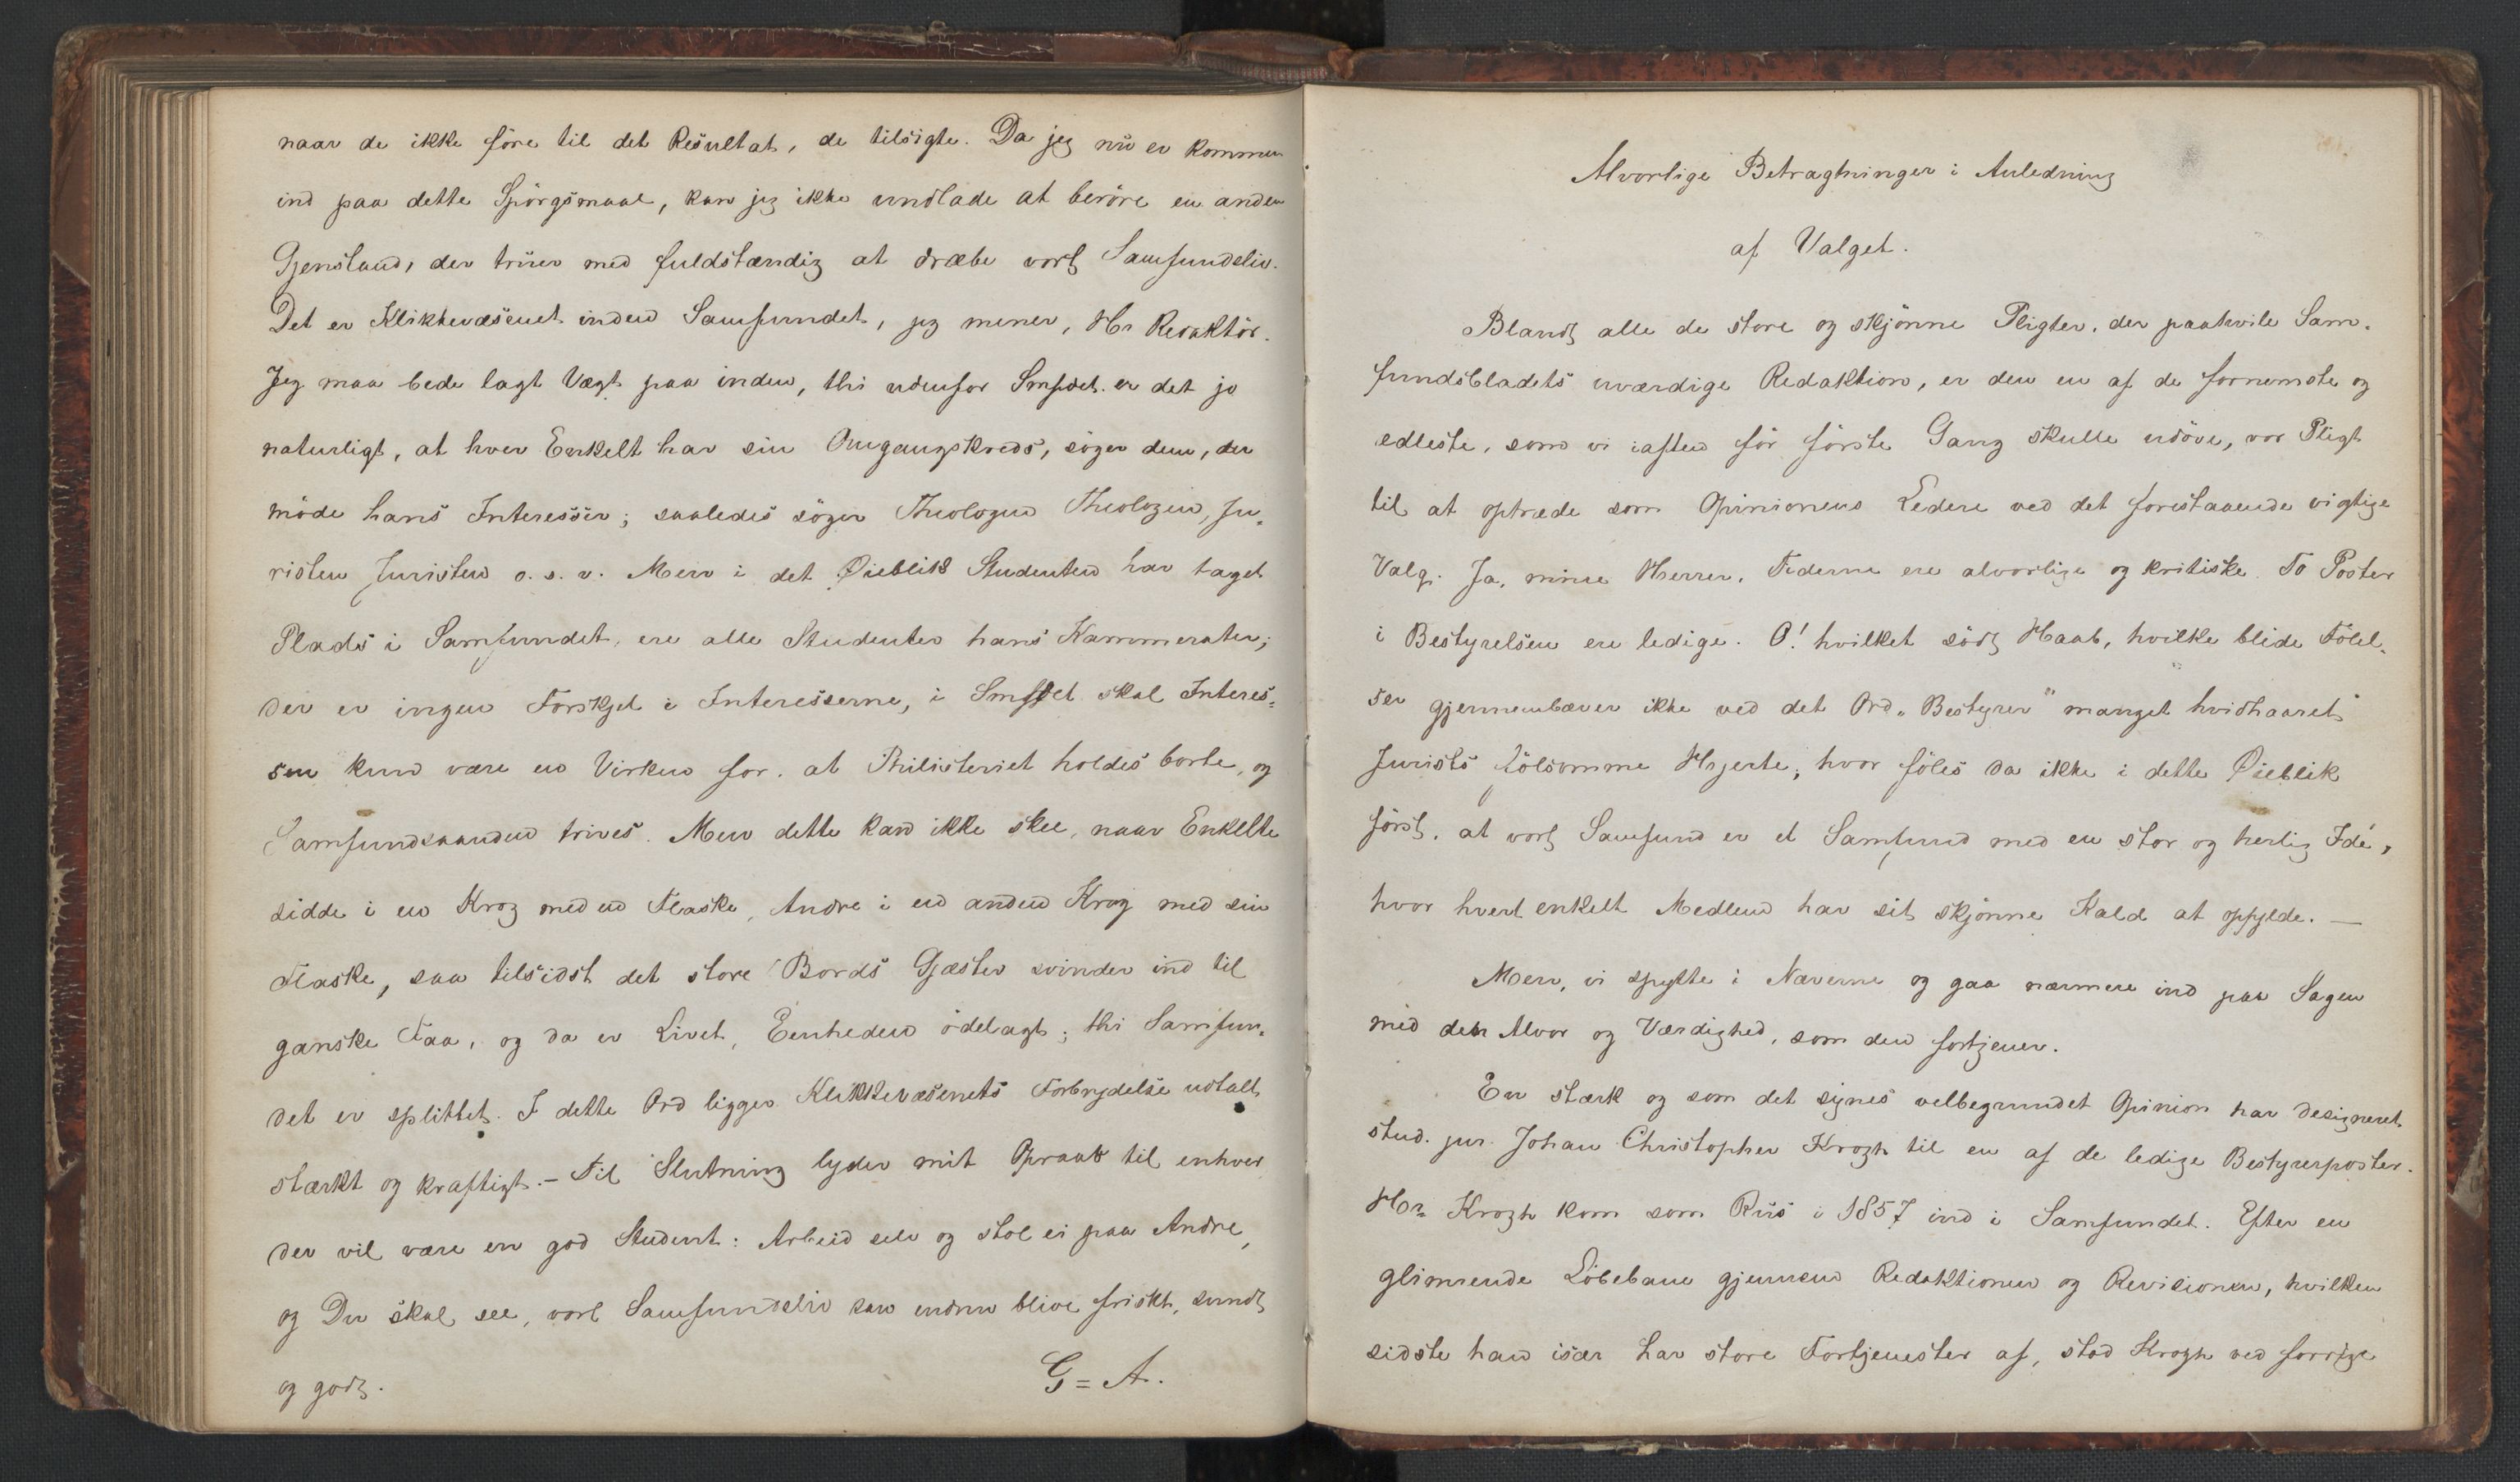 naar de ikke före til det Resultat, de tilsigte. Da jeg nu er kommen
ind paa dette Spörgsmaal, kan jeg ikke undlade at beröre en anden
Gjenstand, der truer med fuldstændig at dræbe vort Samfundsliv.
Det er Klikkevæsenet inden Samfundet, jeg mener, Hr Redaktör.
Jeg maa bede lagt Vægt paa inden, thi udenfor Smfdet. er det jo
naturligt, at hver Enkelt har sin Omgangskreds, söger dem, der
möde hans Interesser; saaledes söger Theologen Theologen, Ju-
risten Juristen o. s. v. Men i det Øieblik Studenten har taget
Plads i Samfundet, ere alle Studenter hans Kammerater;
der er ingen Forskjel i Interesserne, i Smfdet skal Interes-
sen kun være en Virken for, at Philisteriet holdes borte, og
Samfundsaanden trives. Men dette kan ikke skee, naar Enkelte
sidde i en Krog med en Flaske, Andre i en anden Krog med sin
Flaske, saa tilsidst det store Bords Gjæster svinder ind til
ganske Faa, og da er Livet, Eenheden ödelagt; thi Samfun-
det er splittet. I dette Ord ligger Klikkevæsenets Forbrydelse udtalt
stærkt og kraftigt. - Til Slutning lyder mit Opraab til enhver
der vil være en god Student: Arbeid selv og stol ei paa Andre,
og Du skal see, vort Samfundsliv kan endnu blive friskt, sundt
og godt. G = A.
Alvorlige Betragtninger i Anledning
af Valget.
Blandt alle de store og skjönne Pligter, der paahvile Sam-
fundsbladets uværdige Redaktion, er den en af de fornemste og
edleste, som vi iaften for förste Gang skulle udöve, vor Pligt
til at optræde som Opinionens Ledere ved det forestaaende vigtige
Valg. Ja, mine Herrer, Tiderne ere alvorlige og kritiske. To Poster
i Bestyrelsen ere ledige. O! hvilket södt Haab, hvilke blide Fölel-
ser gjennembæver ikke ved det Ord „Bestyrer" manget hvidhaaret
Jurists fölsomme Hjerte; hvor föles da ikke i dette Øieblik
först, at vort Samfund er et Samfund med en stor og herlig Idé,
hvor hvert enkelt Medlem har sit skjönne Kald at opfylde. —
Men, vi spytte i Næverne og gaa nærmere ind paa Sagen
med den Alvor og Værdighed, som den fortjener.
En stærk og som det synes velbegrundet Opinion har designeret
stud. jur. Johan Christopher Krogh til en af de ledige Bestyrerposter.
Hr. Krogh kom som Rus i 1857 ind i Samfundet. Efter en
glimrende Löbebane gjennem Redaktionen og Revisionen, hvilken
sidste han især har store Fortjenester af, stod Krogh ved forrige